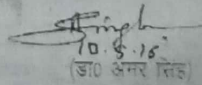 Singh
10.5.15
(डा० अमर सिंह)